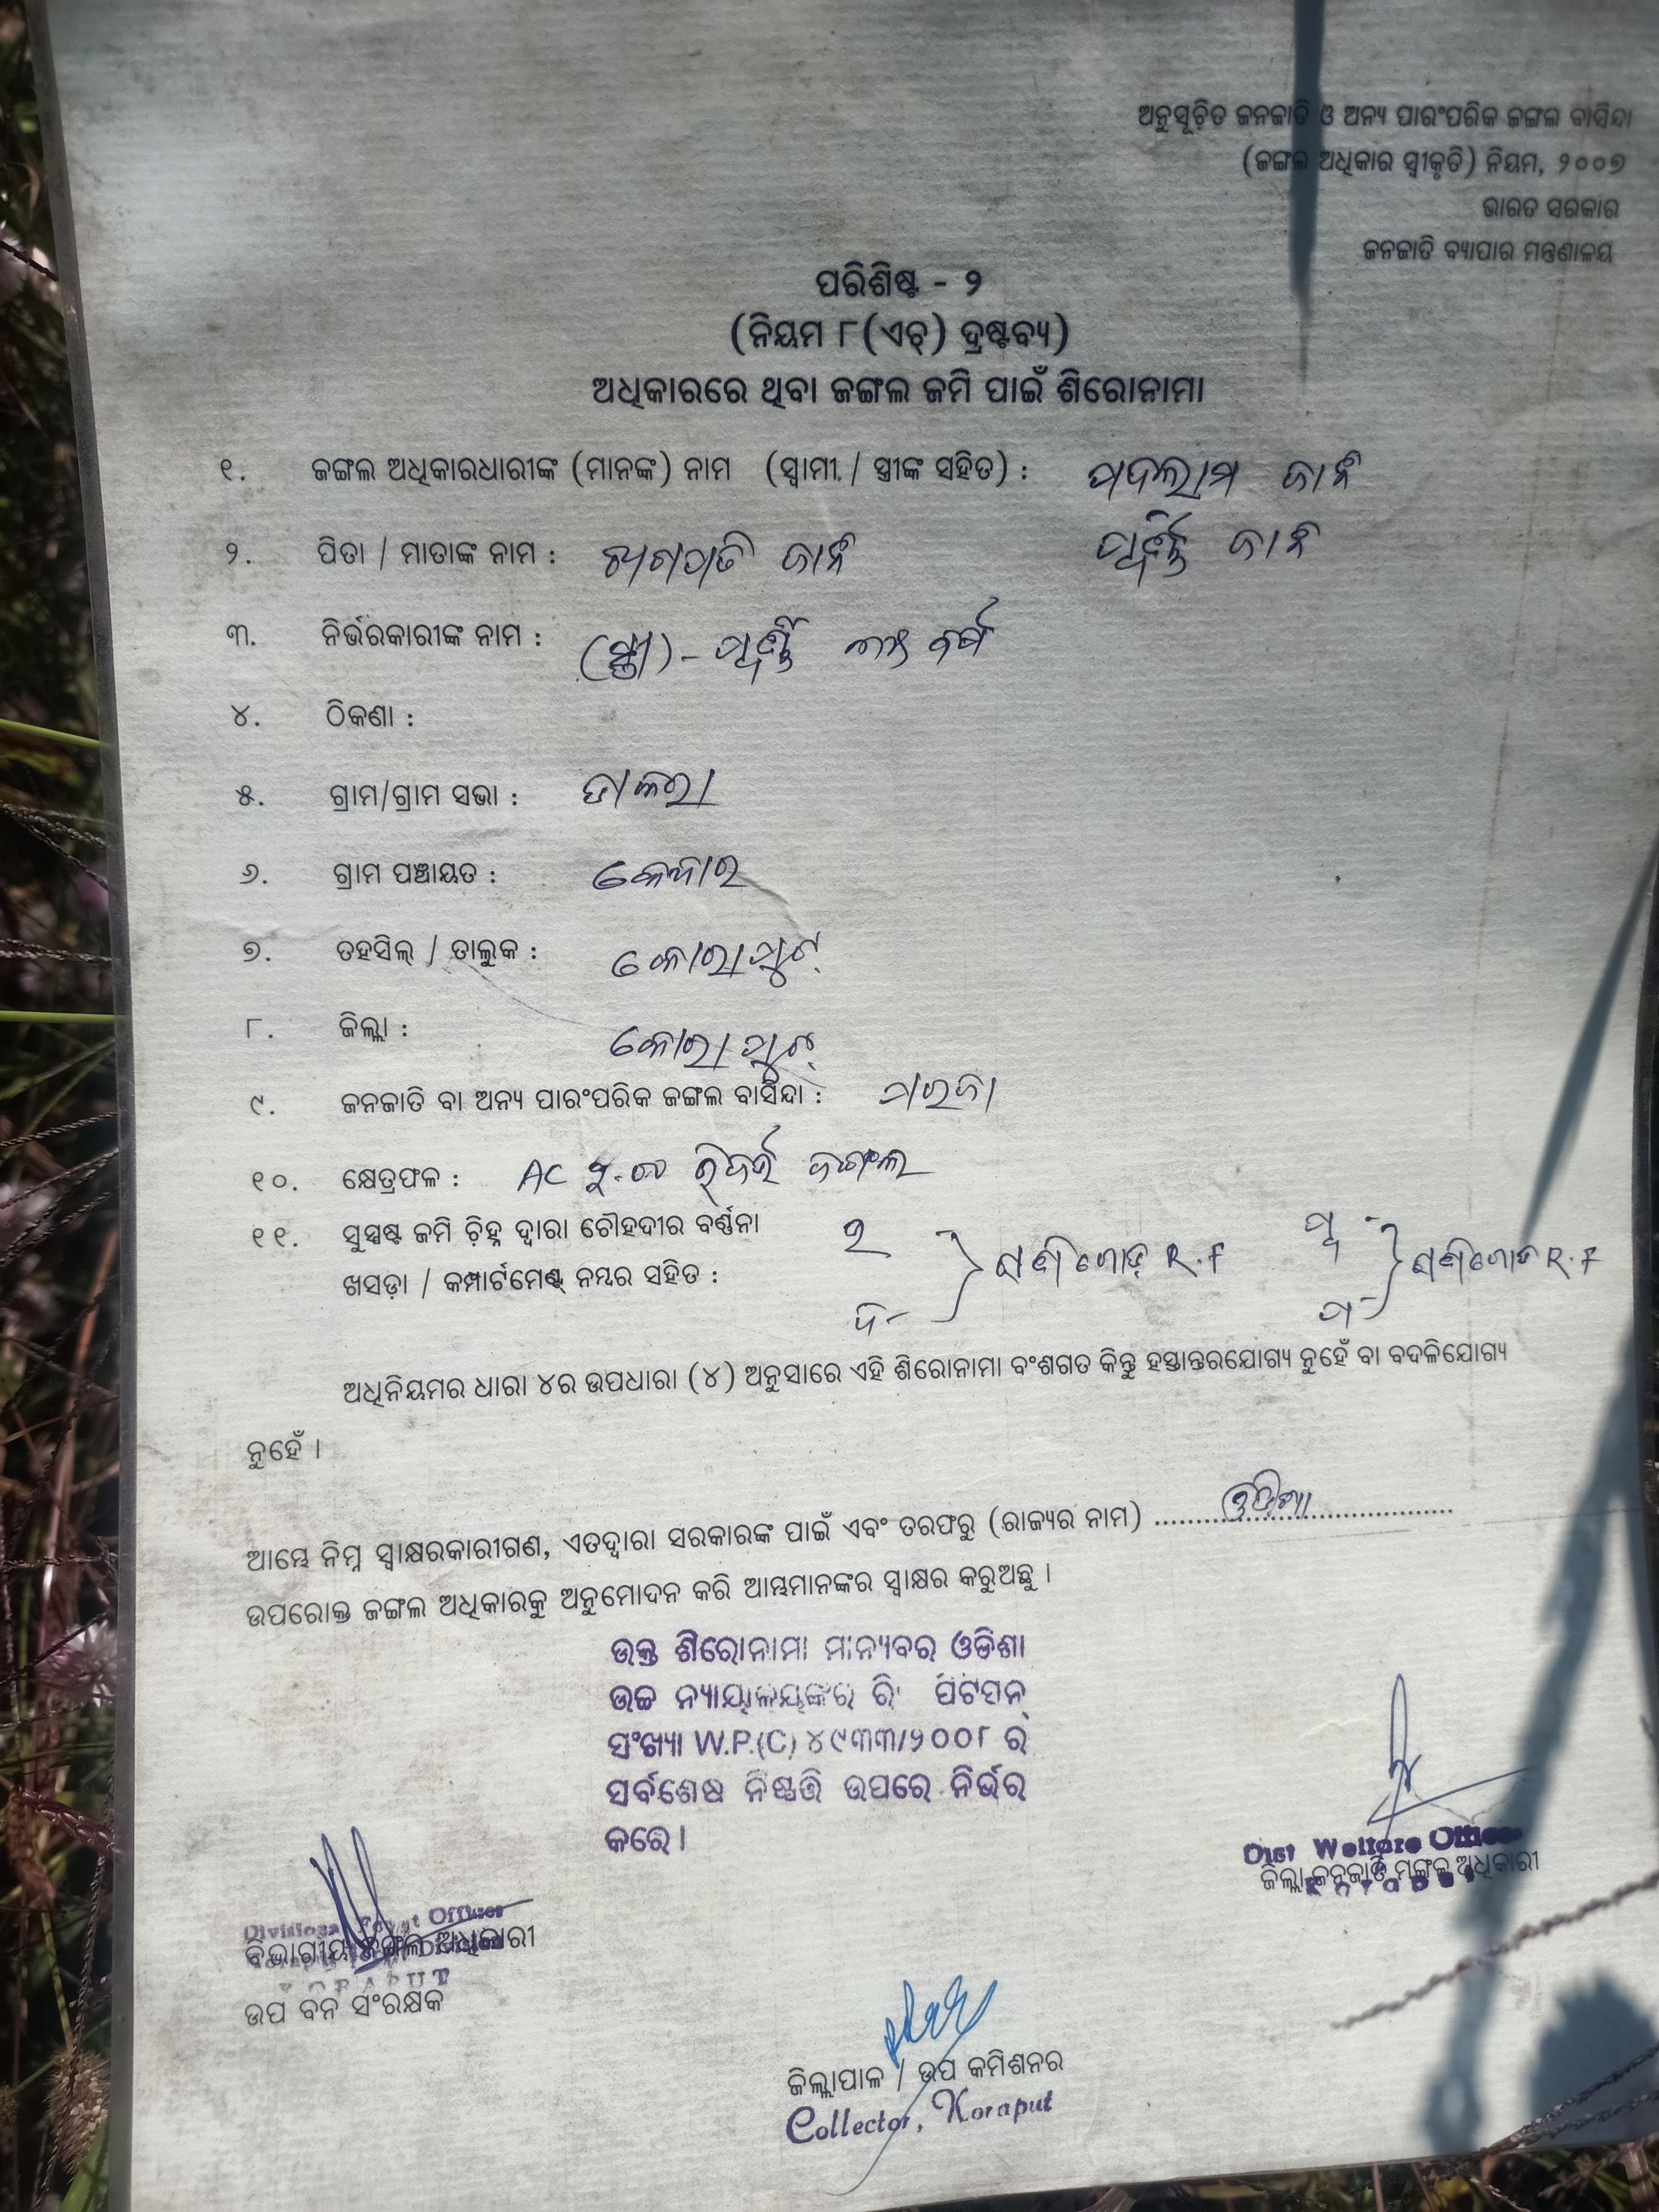 ଅନୁସୂଚିତ ଜନଜାତି ଓ ଅନ୍ୟ ପାରଂପରିକ ଜଙ୍ଗଲ ବାସିନ୍ଦା
(ଜଙ୍ଗଲ ଅଧିକାର ସ୍ୱୀକୃତି) ନିୟମ, ୨୦୦୭
ଭାରତ ସରକାର
ଜନଜାତି ବ୍ୟାପାର ମନ୍ତ୍ରଣାଳୟ
ପରିଶିଷ୍ଟ - ୨
(ନିୟମ ୮(ଏଚ୍) ଦ୍ରଷ୍ଟବ୍ୟ)
ଅଧିକାରରେ ଥିବା ଜଙ୍ଗଲ ଜମି ପାଇଁ ଶିରୋନାମା
୧. ଜଙ୍ଗଲ ଅଧିକାରଧାରୀଙ୍କ (ମାନଙ୍କ) ନାମ (ସ୍ୱାମୀ / ସ୍ତ୍ରୀଙ୍କ ସହିତ) : ଜାନି
୨. ପିତା / ମାତାଙ୍କ ନାମ : ଜାନି ଜାନି
୩. ନିର୍ଭରକାରୀଙ୍କ ନାମ : (ସ୍ତ୍ରୀ) - ବର୍ଷ
୪. ଠିକଣା :
୫. ଗ୍ରାମ/ଗ୍ରାମ ସଭା :
୬. ଗ୍ରାମ ପଞ୍ଚାୟତ : କେନ୍ଦାର
୭. ତହସିଲ୍ / ତାଲୁକ : କୋରାପୁଟ୍
୮. ଜିଲ୍ଲା : କୋରାପୁଟ୍
୯. ଜନଜାତି ବା ଅନ୍ୟ ପାରଂପରିକ ଜଙ୍ଗଲ ବାସିନ୍ଦା : ପରଜା
୧୦. କ୍ଷେତ୍ରଫଳ : AC ୨.୦୦ ରିଜର୍ଭ ଜଙ୍ଗଲ
୧୧. ସୁସ୍ପଷ୍ଟ ଜମି ଚିହ୍ନ ଦ୍ୱାରା ଚୌହଦୀର ବର୍ଣ୍ଣନା ଉ ପୂ
ଖସଡ଼ା / କମ୍ପାର୍ଟମେଣ୍ଟ୍ ନମ୍ବର ସହିତ : R.F R.F
ଦ ପ
ଅଧିନିୟମର ଧାରା ୪ର ଉପଧାରା (୪) ଅନୁସାରେ ଏହି ଶିରୋନାମା ବଂଶଗତ କିନ୍ତୁ ହସ୍ତାନ୍ତରଯୋଗ୍ୟ ନୁହେଁ ବା ବଦଳିଯୋଗ୍ୟ
ନୁହେଁ ।
ଆମ୍ଭେ ନିମ୍ନ ସ୍ୱାକ୍ଷରକାରୀଗଣ, ଏତଦ୍ୱାରା ସରକାରଙ୍କ ପାଇଁ ଏବଂ ତରଫରୁ (ରାଜ୍ୟର ନାମ) ....ଓଡ଼ିଶା....
ଉପରୋକ୍ତ ଜଙ୍ଗଲ ଅଧିକାରକୁ ଅନୁମୋଦନ କରି ଆମ୍ଭମାନଙ୍କର ସ୍ୱାକ୍ଷର କରୁଅଛୁ ।
ଉକ୍ତ ଶିରୋନାମା ମାନ୍ୟବର ଓଡିଶା
ଉଚ୍ଚ ନ୍ୟାୟାଳୟଙ୍କର ରିଟ ପିଟିସନ୍
ସଂଖ୍ୟା W.P.(C) ୪୯୩୩/୨୦୦୮ ର
ସର୍ବଶେଷ ନିଷ୍ପତ୍ତି ଉପରେ ନିର୍ଭର
କରେ ।
Dist Welfare Officer
ଜିଲ୍ଲା ଜନଜାତି ମଙ୍ଗଳ ଅଧିକାରୀ
Divisional Forest Officer
ବିଭାଗୀୟ ଜଙ୍ଗଲ ଅଧିକାରୀ
KORAPUT
ଉପ ବନ ସଂରକ୍ଷକ
ଜିଲ୍ଲାପାଳ / ଉପ କମିଶନର
Collector, Koraput